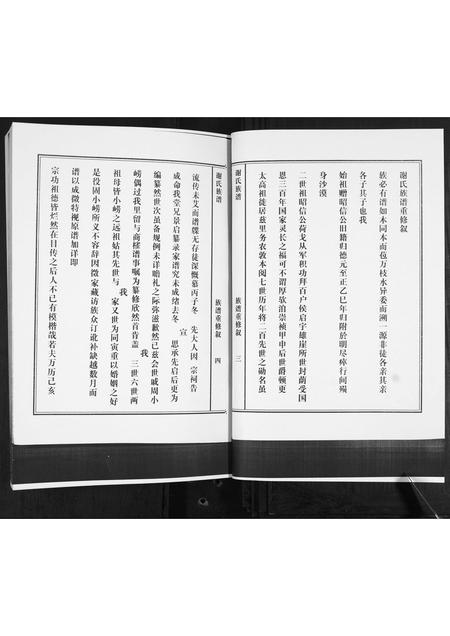 谢氏族谱重修叙
族必有谱如木同本而苞万枝水异委而溯一源非徒各亲其亲
各子其子也我
始祖赠昭信公旧籍归德元至正乙巳年归附於明尽瘁行间殒
身沙漠
二世祖昭信公荷戈从军积功拜百户侯启宇雄崖所世封荫受国
恩三百年国家灵长之福可不谓厚欤洎崇祯甲申后世爵顿更
太高祖徙居兹里务农敦本阅七世历年将二百先世之勋名虽
谢氏族谱
族谱重修叙
三
谢氏族谱
族谱重修叙
四
流传未艾而谱牒无存徒深慨慕丙子冬 先大人因 宗祠告
成命我堂兄景启纂录家谱究未成绪去冬 宣 思承先启后更为
编纂然世次虽备规例未详赡礼之际弥滋歉然已兹会世戚周小
崂偶过我里留与商榷谱事嘱为纂修欣然首肯盖 我 三世六世两
祖母皆小崂之远祖姑其先世与 我 家又世为同寅重以婚姻之好
是役固小崂所义不容辞因徵家藏访族众订讹补缺越数月而
谱以成微特视原谱加详即
宗功祖德皆烂然在目传之后人不已有模楷哉若夫万历己亥